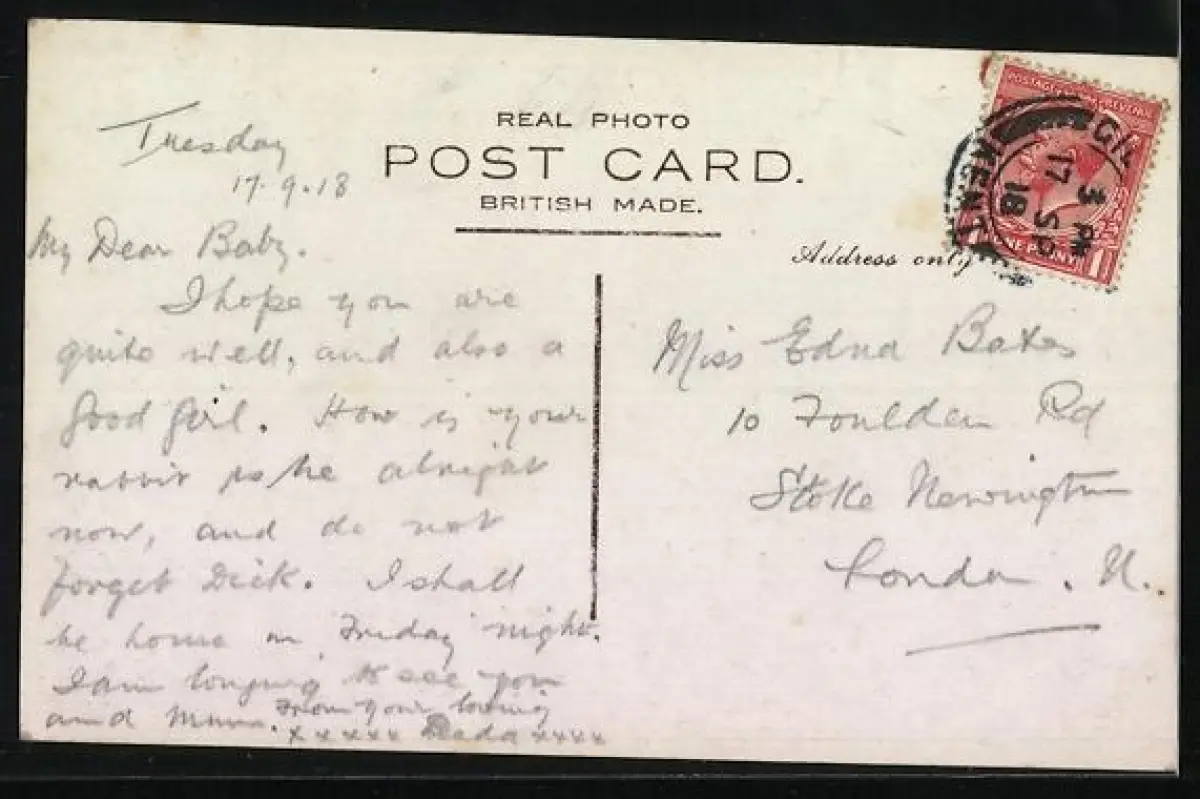 REAL PHOTO
POST CARD.
BRITISH MADE.
Address only
Tuesday
17.9.18
My Dear Baby.
I hope you are
quite well, and also a
good girl. How is your
rabbit is he alright
now, and do not
forget Dick. I shall
be home on Friday night.
I am longing to see you
and Mum. From your loving
xxxxx Dada xxxx
Miss Edna Bates
10 Foulden Rd
Stoke Newington
London. N.
POSTAGE REVENUE
ONE PENNY 1
KENT
3 PM
17 SP
18